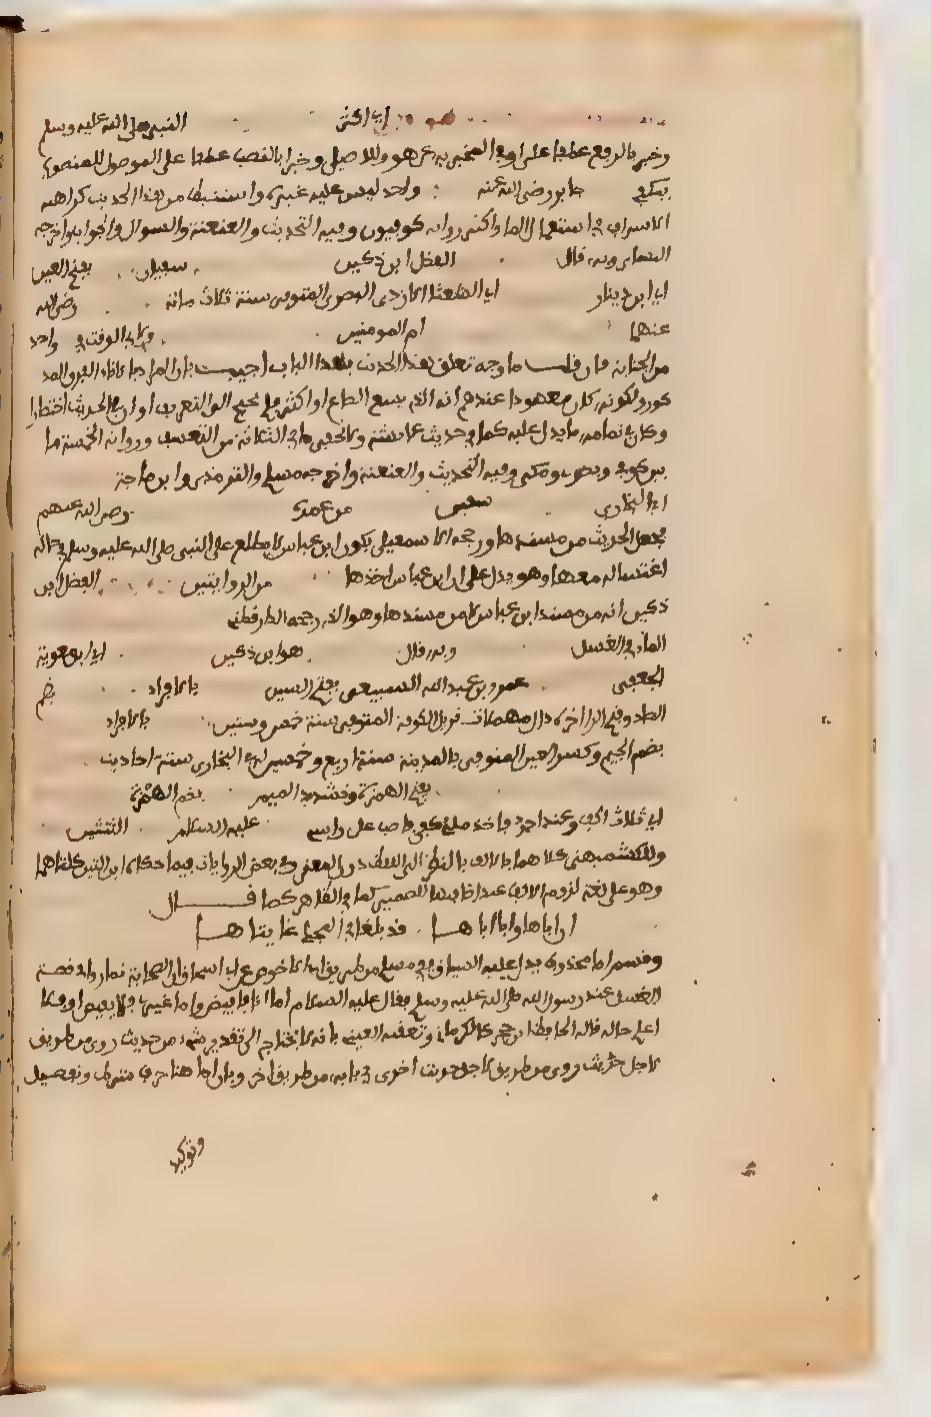 هو اي اكثر النبي صلى الله عليه وسلم
وخير بالرفع عطفا على اوفى المخبر به عن هو وللاصيلي وخيرا بالنصب عطفا على الموصول المنصوب
بيكفي جابر رضي الله عنه واحد ليس عليه غيره واستنبط من هذا الحديث كراهة
الاسراف في استعمال الماء واكثر رواته كوفيون وفيه التحديث والعنعنة والسوال والجواب واخرجه
النساءي وبه قال الفضل ابن دكين سفيان بفتح العين
اي ابن دينار ابي الشعثا الازدي البصري المتوفى سنة ثلاث ومائة رضي الله
عنهما ام المومنين واحد
من الجنابة فان قلت ما وجه تعلق هذا الحديث بهذا الباب اجيب بان المراد بالاناء الفرق المذ
كور ولكونه كان معهودا عندهم انه الذي يسع الصاع او اكثر فلم يحتج الى التعريف او ان في الحديث اختصارا
وكان في تمامه ما يدل عليه كما في حديث عائشة ولا يخفى ما في الثلاثة من التعسف ورواته الخمسة ما
بين كوفي وبصري ومكي وفيه التحديث والعنعنة واخرجه مسلم والترمذي وابن ماجة
اي البخاري عن ميمونة رضي الله عنهم
فجعل الحديث من مسندها ورجحه الاسمعيلي بكون ابن عباس لا يطلع على النبي صلى الله عليه وسلم في حالة
اغتساله معها وهو يدل على ان ابن عباس اخذها من الروايتين الفضل ابن
دكين انه من مسند ابن عباس لا من مسندها وهو الذي رجحه الدارقطني
الماء في الغسل وبه قال هو ابن دكين اي ابن معوية
الجعفي عمرو بن عبد الله السبيعي بفتح السين بالافراد بضم
الصاد وفتح الراء اخره دال مهملات نزيل الكوفة المتوفى سنة خمس وستين بالافراد
بضم الجيم وكسر العين المتوفى بالمدينة سنة اربع وخمسين له في البخاري ستة احاديث
بفتح الهمزة وتشديد الميم بضم الهمزة
اي ثلاث اكف وعند احمد فاخذ ملء كفي فاصب على راسي عليه السلام الثنتين
وللكشميهني كلاهما بالالف بالنظر الى اللفظ دون المعنى وفي بعض الروايات فيما حكاه ابن التين كلتاهما
وهو على لغة لزوم الالف عند اضافتها للضمير كما في الظاهر كما قــال
ان اباها وابا اباها قد بلغا في المجد غايتاها
وقسيم اما محذوف يدل عليه السياق وفي مسلم من طريق ابي الاحوص عن ابي اسحاق ان الصحابة تماروا في صفة
الغسل عند رسول الله صلى الله عليه وسلم فقال عليه السلام اما انا فافيض واما غيري فلا يفيض او فلا
اعلم حاله قاله الحافظ ابن حجر كالكرماني وتعقبه العيني بانه لا يحتاج الى تقدير شيء من حديث روي من طريق
لاجل حديث روي من طريق لاجل حديث اخر في بابه من طريق اخر وبان اما هنا حرف شرط وتفصيل
وتوكيد